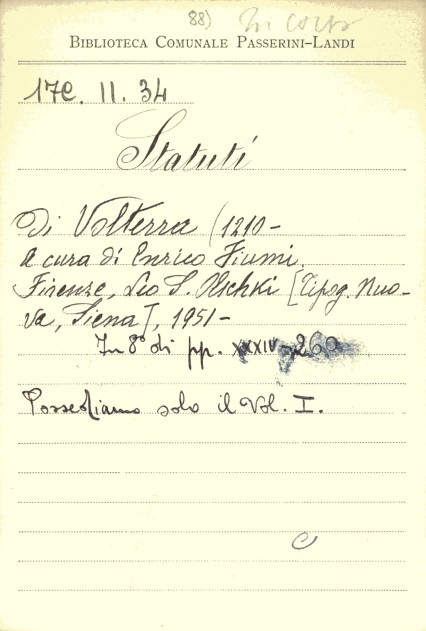 88) In corso
BIBLIOTECA COMUNALE PASSERINI-LANDI
17C. II. 34
Statuti
Di Volterra (1210-
A cura di Enrico Fiumi.
Firenze, Leo S. Olschki [Tipog. Nuo-
va, Siena], 1951-
In 8° di pp. XXXIV-260
Possediamo solo il Vol. I.
C